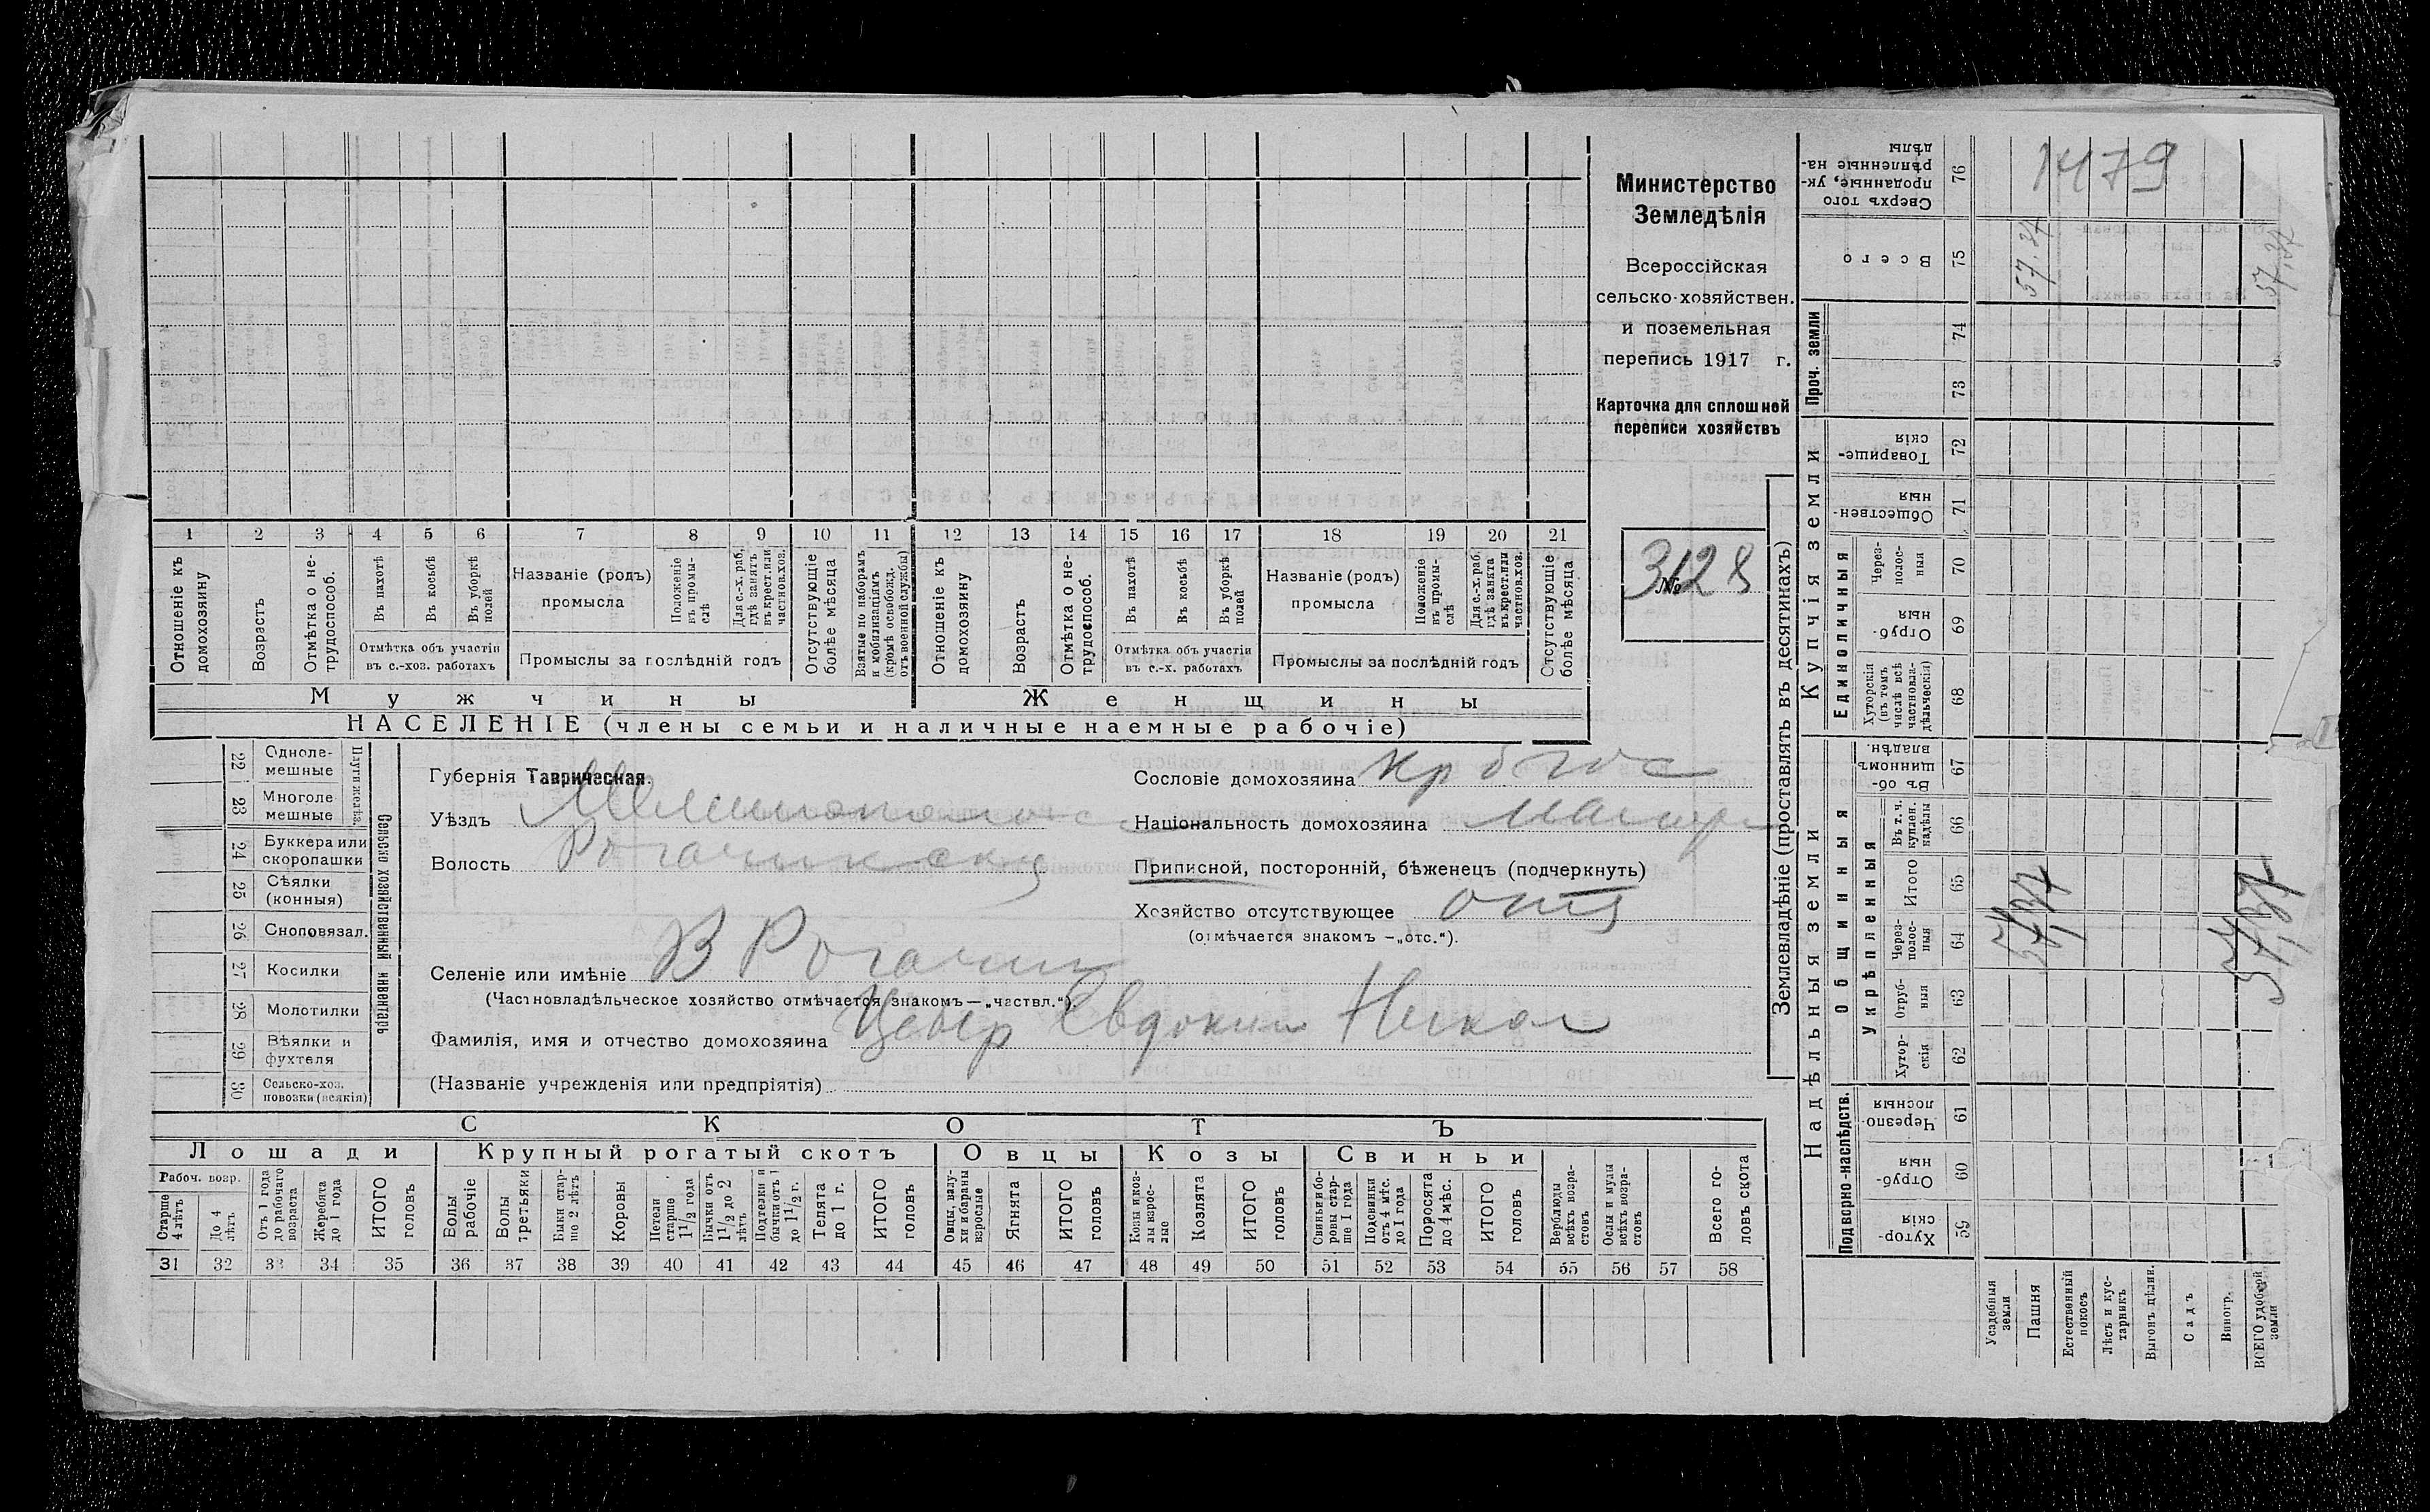 Министерство
Земледѣлія
Всероссійская
сельско-хозяйствен.
и поземельная
перепись 1917 г.
Карточка для сплошной
переписи хозяйствъ
№ 3128
1 2 3 4 5 6 7 8 9 10 11 12 13 14 15 16 17 18 19 20 21
Отношеніе къ домохозяину
Возрастъ
Отмѣтка о не-трудоспособ.
Въ пахотѣ
Въ косьбѣ
Въ уборкѣ полей
Отмѣтка объ участіи въ с.-хоз. работахъ
Названіе (родъ) промысла
Положеніе въ промы-слѣ
Для с.-х. раб. гдѣ занятъ въ крест. или частновл. хоз.
Промыслы за послѣдній годъ
Отсутствующіе болѣе мѣсяца
Взятые по наборамъ и мобилизаціямъ (кромѣ освобожд. отъ военной службы)
Отношеніе къ домохозяину
Возрастъ
Отмѣтка о не-трудоспособ.
Въ пахотѣ
Въ косьбѣ
Въ уборкѣ полей
Отмѣтка объ участіи въ с.-х. работахъ
Названіе (родъ) промысла
Положеніе въ промы-слѣ
Для с.-х. раб. гдѣ занята въ крест. или частновл. хоз.
Промыслы за послѣдній годъ
Отсутствующіе болѣе мѣсяца
Мужчины
Женщины
НАСЕЛЕНІЕ (члены семьи и наличные наемные рабочіе)
22 Одноле-мешные
23 Многоле мешные
Плуги желѣз.
24 Буккера или скоропашки
25 Сѣялки (конныя)
26 Сноповязал.
27 Косилки
28 Молотилки
29 Вѣялки и фухтеля
30 Сельско-хоз. повозки (всякія)
Сельско хозяйственный инвентарь
Губернія Таврическая.
Уѣздъ
Волость
Селеніе или имѣніе В Рогачик
(Частновладѣльческое хозяйство отмѣчается знакомъ—„частвл.“).
Фамилія, имя и отчество домохозяина Евдоким Никол
(Названіе учрежденія или предпріятія)
Сословіе домохозяина
Національность домохозяина
Приписной, посторонній, бѣженецъ (подчеркнуть)
Хозяйство отсутствующее
(отмѣчается знакомъ —„отс.“).
СКОТЪ
Лошади
Крупный рогатый скотъ
Овцы
Козы
Свиньи
Рабоч. возр.
Старше 4 лѣтъ
До 4 лѣтъ
Отъ 1 года до рабочаго возраста
Жеребята до 1 года
ИТОГО головъ
Волы рабочіе
Волы третьяки
Быки стар-ше 2 лѣтъ
Коровы
Нетели старше 1 1/2 года
Бычки отъ 1 1/2 до 2 лѣтъ
Подтелки и бычки отъ 1 до 1 1/2 г.
Телята до 1 г.
ИТОГО головъ
Овцы, валу-хи и бараны взрослые
Ягнята
ИТОГО головъ
Козы и коз-лы взрос-лые
Козлята
ИТОГО головъ
Свиньи и бо-ровы стар-ше 1 года
Подсвинки отъ 4 мѣс. до 1 года
Поросята до 4 мѣс.
ИТОГО головъ
Верблюды всѣхъ возра-стовъ
Ослы и мулы всѣхъ возра-стовъ
Всего го-ловъ скота
31 32 33 34 35 36 37 38 39 40 41 42 43 44 45 46 47 48 49 50 51 52 53 54 55 56 57 58
Землевладѣніе (проставлять въ десятинахъ)
Сверхъ того проданные, ук-рѣпленные на-дѣлы 76
1479
Всего 75
Проч. земли
74
73
Купчія земли
Товарище-скія 72
Обществен-ныя 71
Единоличныя
Через-полос-ныя 70
Отруб-ныя 69
Хуторскія (въ томъ числѣ всѣ частновла-дѣльческія) 68
Надѣльныя земли
Общинныя
Въ об-щинномъ владѣн. 67
Укрѣпленныя
Въ т. ч. куплен. надѣлы 66
Итого 65
Через-полос-ныя 64
Отруб-ныя 63
Хутор-скія 62
Подворно-наслѣдств.
Черезпо-лосныя 61
Отруб-ныя 60
Хутор-скія 59
Усадебныя земли
Пашня
Естественный покосъ
Лѣсъ и кус-тарникъ
Выгонъ дѣлим.
Садъ
Виногр.
ВСЕГО удобной земли